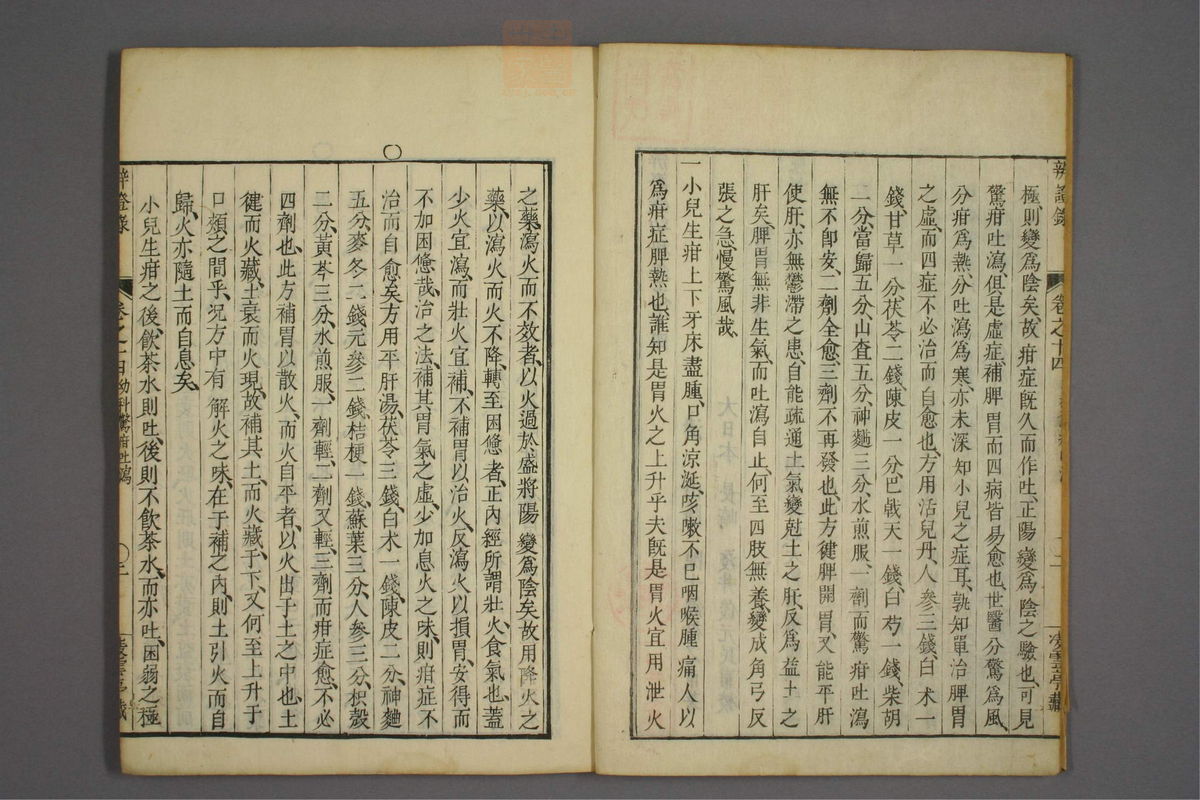 辨證錄 卷之十四
極則變爲陰矣、故疳症既久而作吐、正陽變爲陰之驗也、可見
驚疳吐瀉、但是虛症、補脾胃而四病皆易愈也、世醫分驚爲風、
分疳爲熱、分吐瀉爲寒、亦未深知小兒之症耳、孰知單治脾胃
之虛、而四症不必治而自愈也、方用活兒丹、人參三錢白术一
錢、甘草一分茯苓二錢陳皮一分、巴戟天一錢、白芍一錢、柴胡
二分、當歸五分、山査五分、神麯三分、水煎服、一劑而驚疳吐瀉
無不卽安、二劑全愈、三劑不再發也、此方健脾開胃、又能平肝
使肝亦無鬱滯之患、自能疏通土氣變尅土之肝、反爲益土之
肝矣、脾胃無非生氣、而吐瀉自止、何至四肢無養、變成角弓反
張之急、慢驚風哉、
一小兒生疳上下牙床盡腫、口角涼涎、咳嗽不已咽喉腫痛人以
爲疳症脾熱也、誰知是胃火之上升乎夫既是胃火宜用泄火
凌雲亭藏
之藥、瀉火而不效者、以火過於盛將陽變爲陰矣、故用降火之
藥、以瀉火而火不降、轉至困憊者、正內經所謂壯火食氣也、蓋
少火宜瀉、而壯火宜補、不補胃以治火、反瀉火以損胃、安得而
不加困憊哉、治之法、補其胃氣之虛、少加息火之味、則疳症不
治而自愈矣、方用平肝湯、茯苓三錢、白术一錢、陳皮二分、神麯
五分、麥冬二錢元參二錢、桔梗一錢、蘇葉三分、人參三分、枳殼
二分、黃芩三分、水煎服、一劑輕、二劑又輕、三劑而疳症愈、不必
四劑也、此方補胃以散火、而火自平者、以火出于土之中也、土
健而火藏、土衰而火現、故補其土、而火藏于下、又何至上升于
口頰之間乎、况方中有 解火之味、在于補之內、則土引火而自
歸、火亦隨土而自息矣、
小兒生疳之後、飲茶水則吐、後則不飲茶水、而亦吐、困弱之極